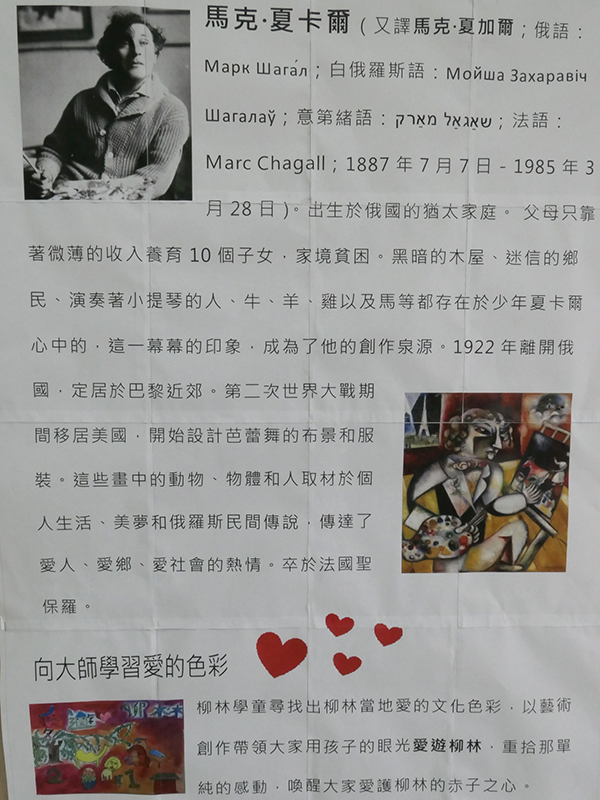 馬克·夏卡爾（又譯馬克·夏加爾；俄語：
Марк Шага́л；白俄羅斯語：Мойша Захаравіч
Шагалаў；意第緒語：שאַגאַל מאַרק；法語：
Marc Chagall；1887 年 7 月 7 日 - 1985 年 3
月 28 日)。出生於俄國的猶太家庭。 父母只靠
著微薄的收入養育 10 個子女，家境貧困。黑暗的木屋、迷信的鄉
民、演奏著小提琴的人、牛、羊、雞以及馬等都存在於少年夏卡爾
心中的，這一幕幕的印象，成為了他的創作泉源。1922 年離開俄
國，定居於巴黎近郊。第二次世界大戰期
間移居美國，開始設計芭蕾舞的布景和服
裝。這些畫中的動物、物體和人取材於個
人生活、美夢和俄羅斯民間傳說，傳達了
愛人、愛鄉、愛社會的熱情。卒於法國聖
保羅。
向大師學習愛的色彩
柳林學童尋找出柳林當地愛的文化色彩，以藝術
創作帶領大家用孩子的眼光愛遊柳林，重拾那單
純的感動，喚醒大家愛護柳林的赤子之心。